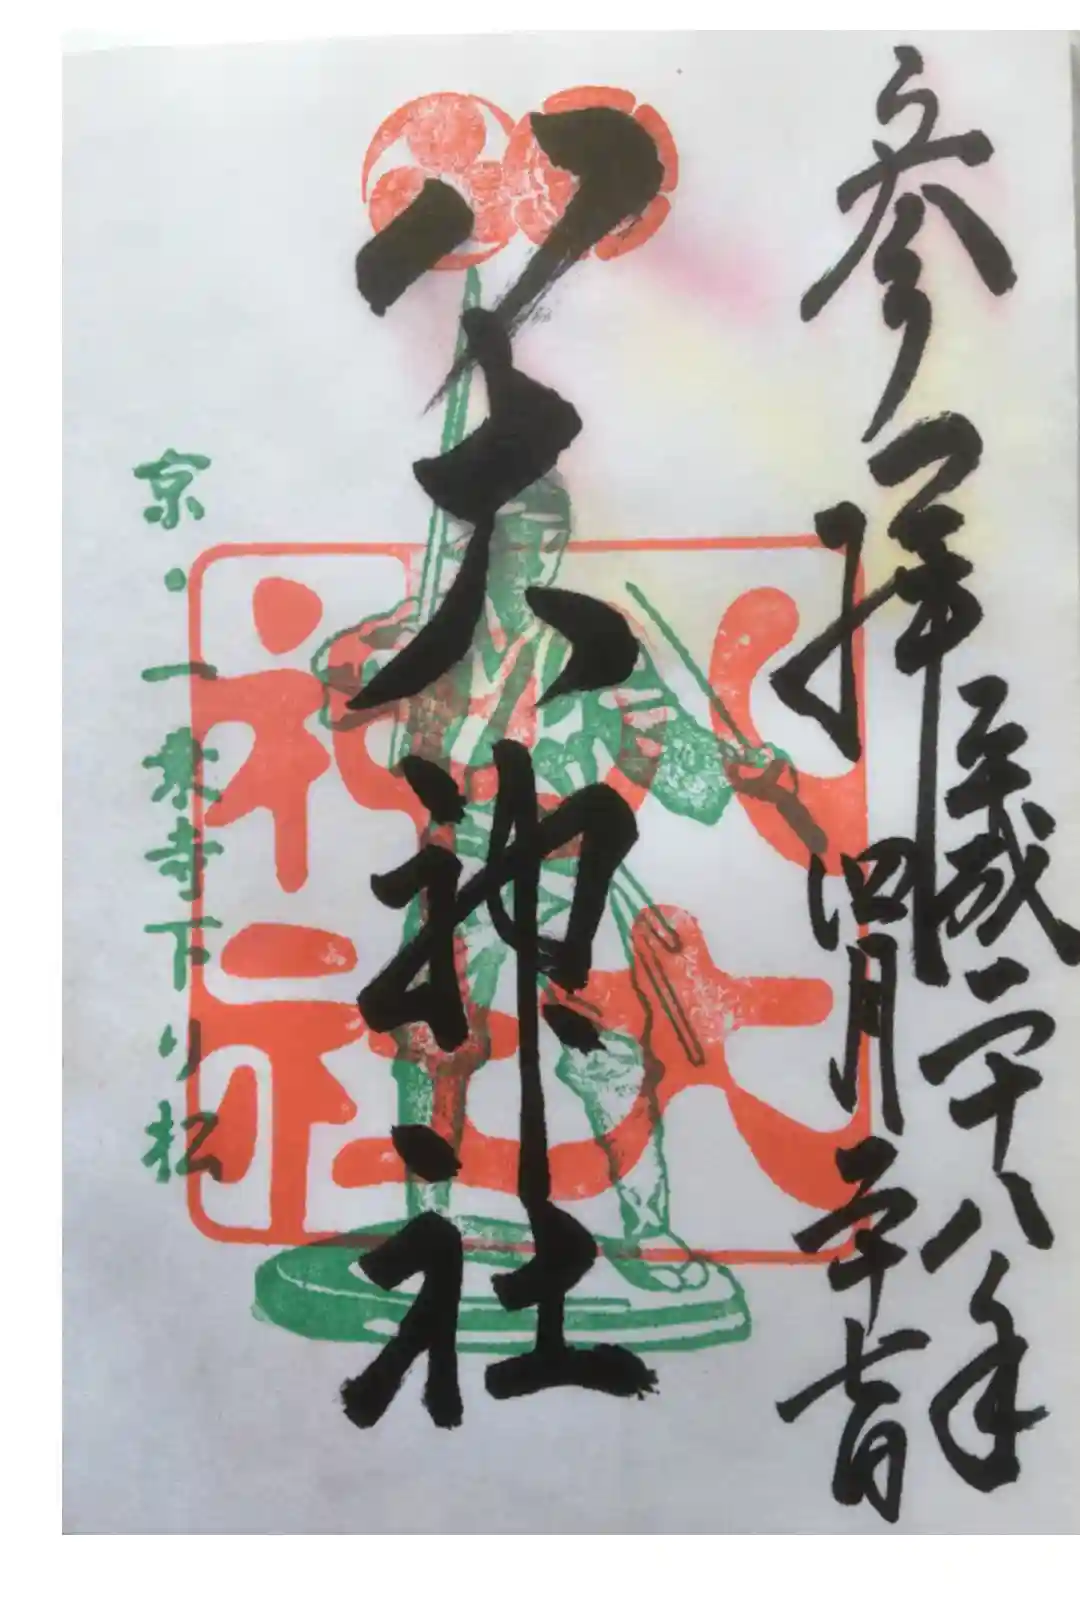 参拝
平成二十八年
四月二十七日
八大神社
八大
神社
京・一乗寺下り松